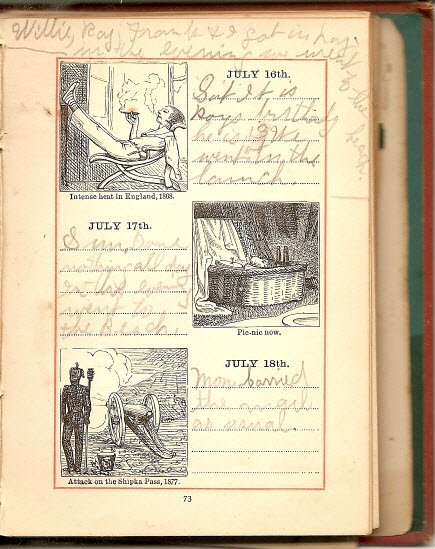 Willie, Roy, Frank & I got in hay
in the evening we went to the beach.
JULY 16th.
Sat. It is
Roys birthday
he is 13 We
went in the
launch.
Intense heat in England, 1868.
JULY 17th.
Sun. Done
nothing all day
in the evening
went to
the beach.
Pic-nic now.
JULY 18th.
Mon. carried
the mail
as usual.
Attack on the Shipka Pass, 1877.
73